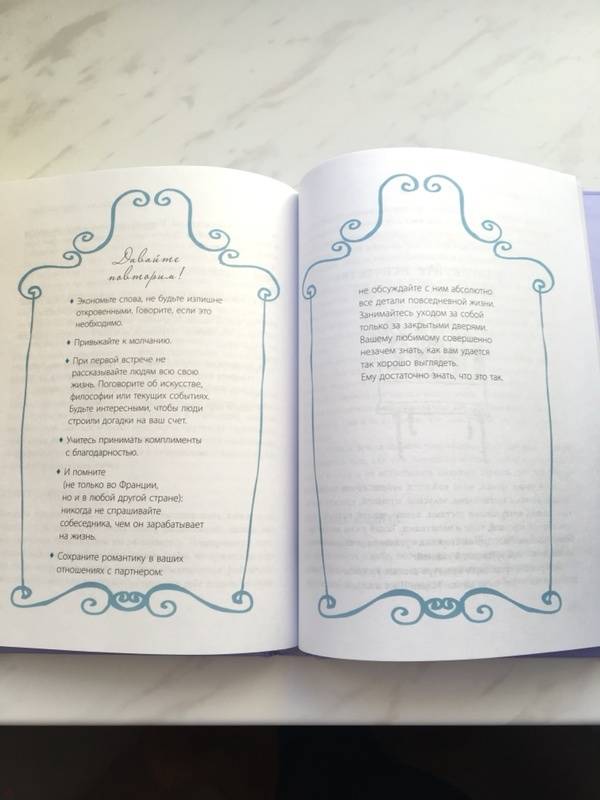 Давайте
повторим!
♦ Экономьте слова, не будьте излишне
откровенными. Говорите, если это
необходимо.
♦ Привыкайте к молчанию.
♦ При первой встрече не
рассказывайте людям всю свою
жизнь. Поговорите об искусстве,
философии или текущих событиях.
Будьте интересными, чтобы люди
строили догадки на ваш счет.
♦ Учитесь принимать комплименты
с благодарностью.
♦ И помните
(не только во Франции,
но и в любой другой стране):
никогда не спрашивайте
собеседника, чем он зарабатывает
на жизнь.
♦ Сохраните романтику в ваших
отношениях с партнером:
не обсуждайте с ним абсолютно
все детали повседневной жизни.
Занимайтесь уходом за собой
только за закрытыми дверями.
Вашему любимому совершенно
незачем знать, как вам удается
так хорошо выглядеть.
Ему достаточно знать, что это так.